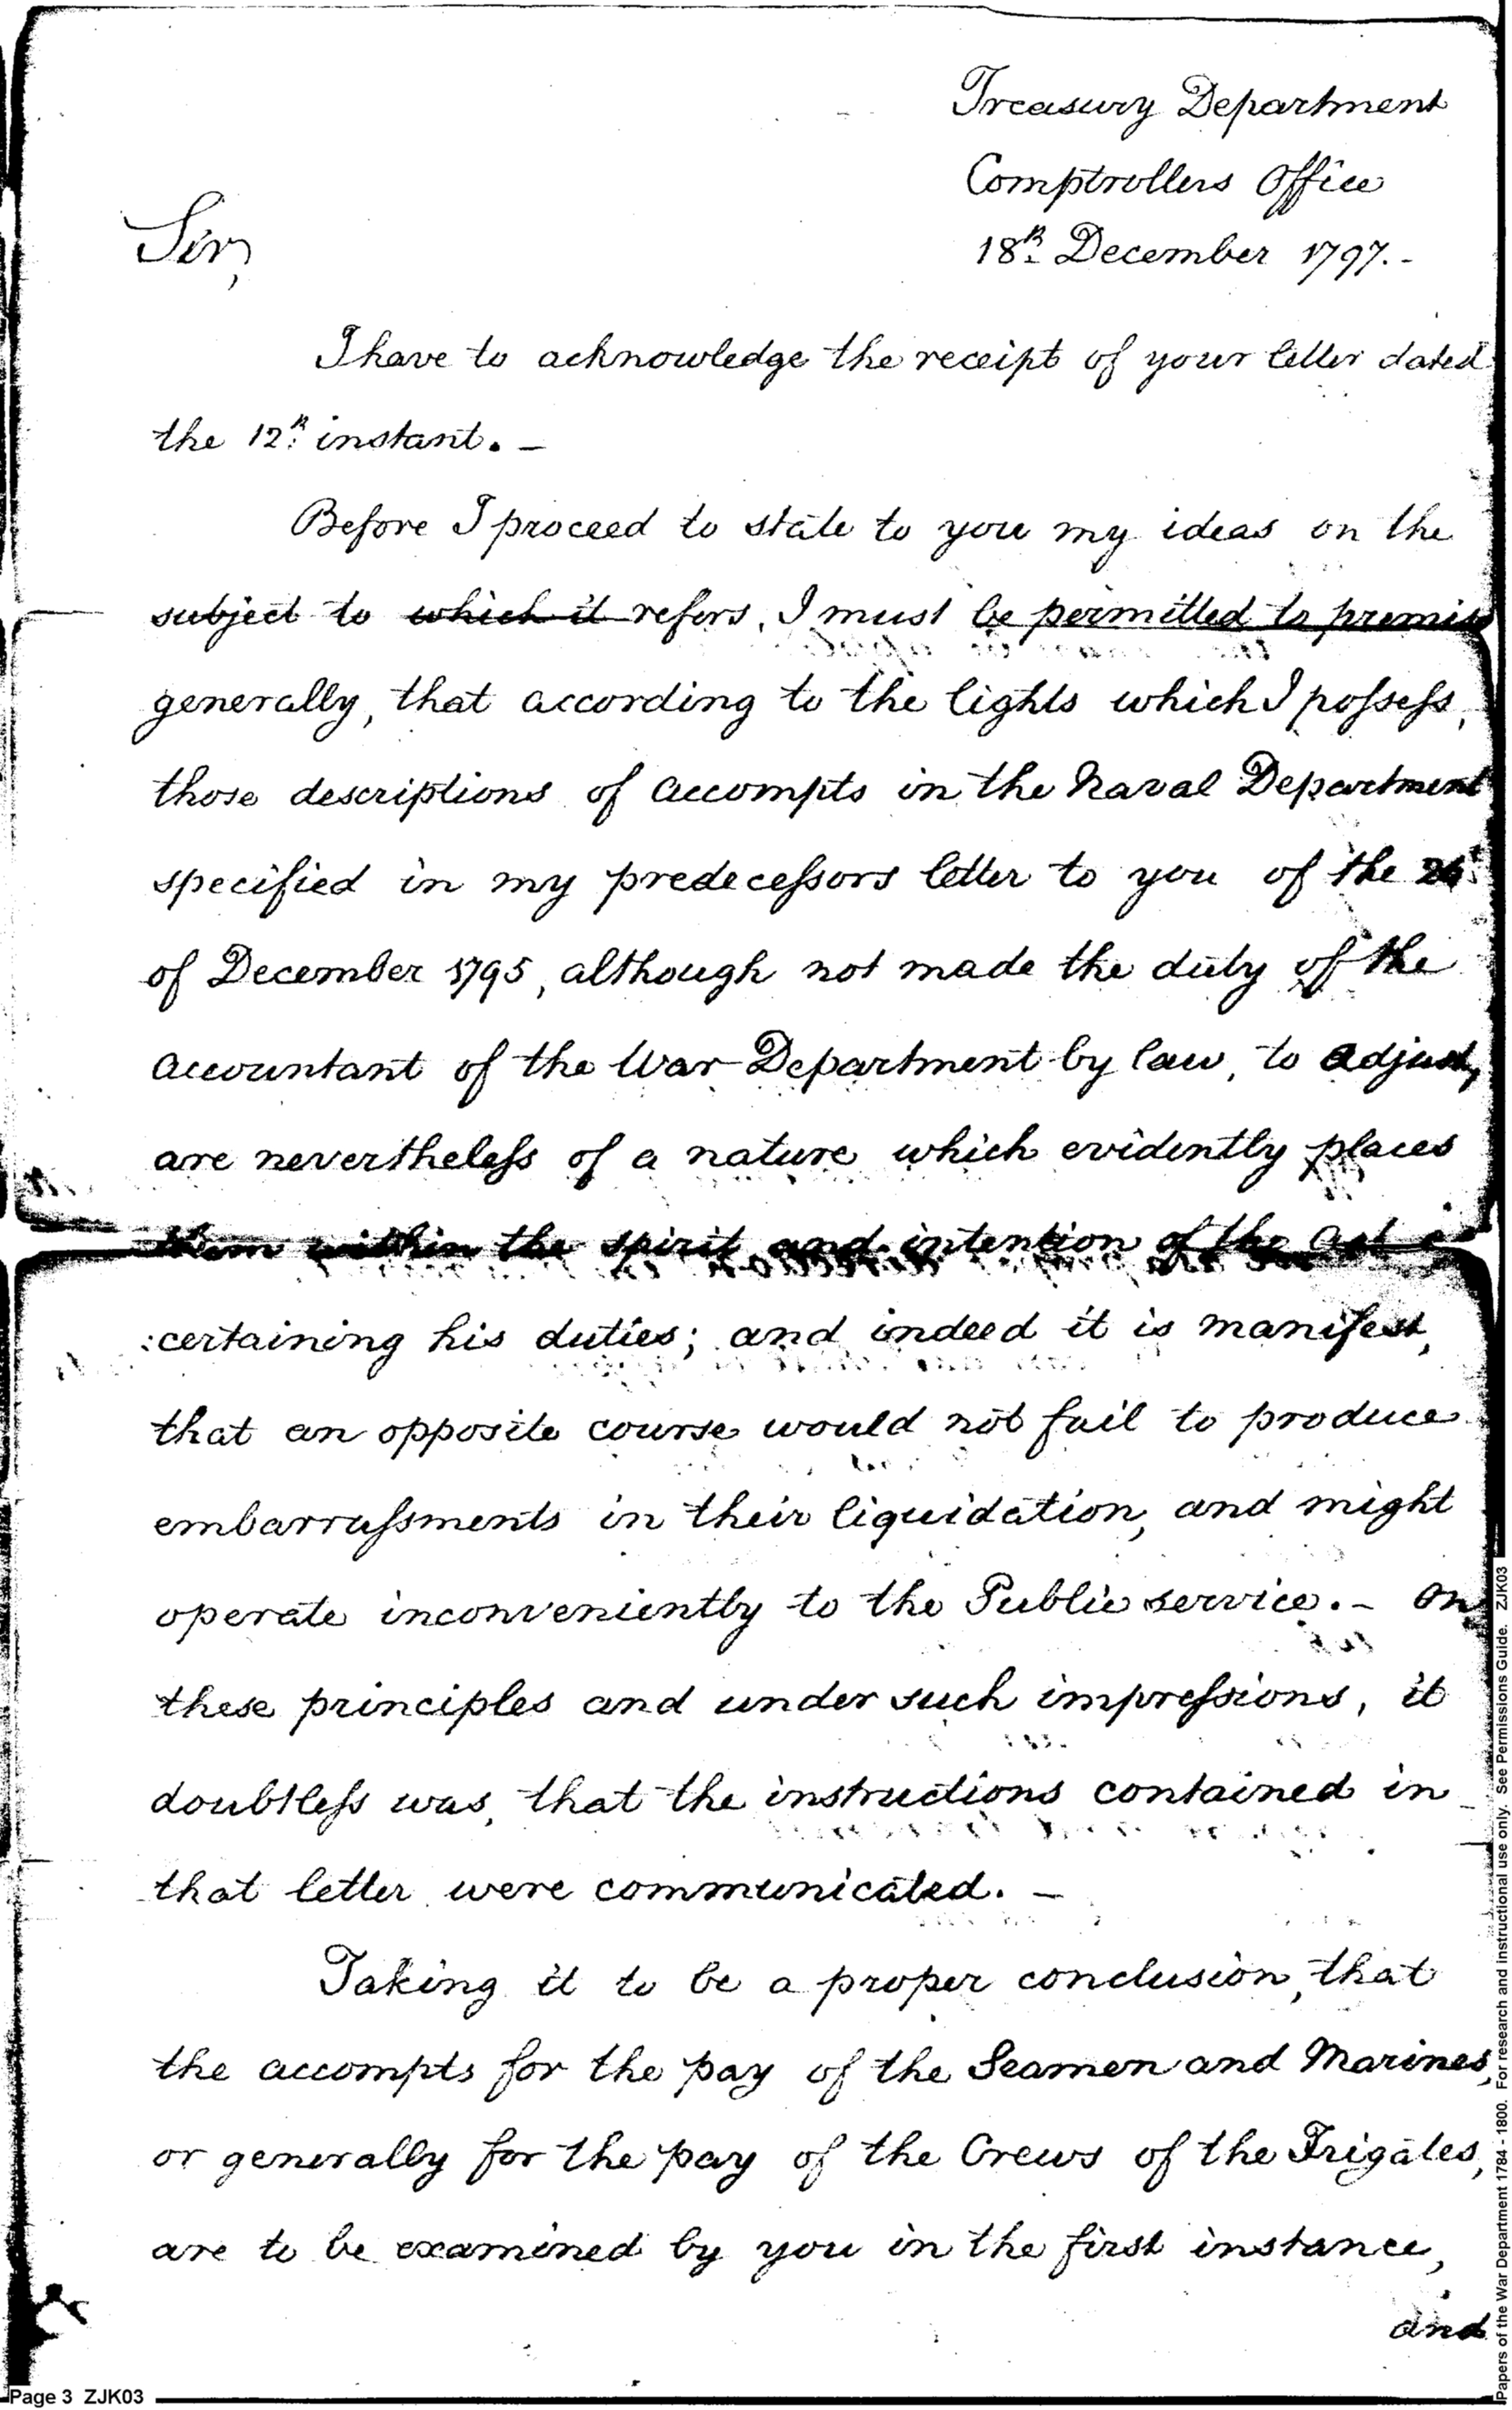 Treasury Department
Comptrollers Office
18th December 1797.-
Sir,
I have to acknowledge the receipt of your letter dated
the 12th instant. -
Before I proceed to state to you my ideas on the
subject to which it refers, I must be permitted to premise
generally, that according to the lights which I possess,
those descriptions of accompts in the Naval Department
specified in my predecessors letter to you of the 26th
of December 1795, although not made the duty of the
Accountant of the War Department by law, to adjust,
are nevertheless of a nature which evidently places
them within the spirit and intention of the act
:certaining his duties; and indeed it is manifest,
that an opposite course would not fail to produce
embarrassments in their liquidation, and might
operate inconveniently to the Public service. - On
these principles and under such impressions, it
doubtless was, that the instructions contained in
that letter were communicated. -
Taking it to be a proper conclusion, that
the accompts for the pay of the Seamen and Marines,
or generally for the pay of the Crews of the Frigates,
are to be examined by you in the first instance,
and
Page 3 ZJK03
Papers of the War Department 1784 - 1800. For research and instructional use only. See Permissions Guide. ZJK03